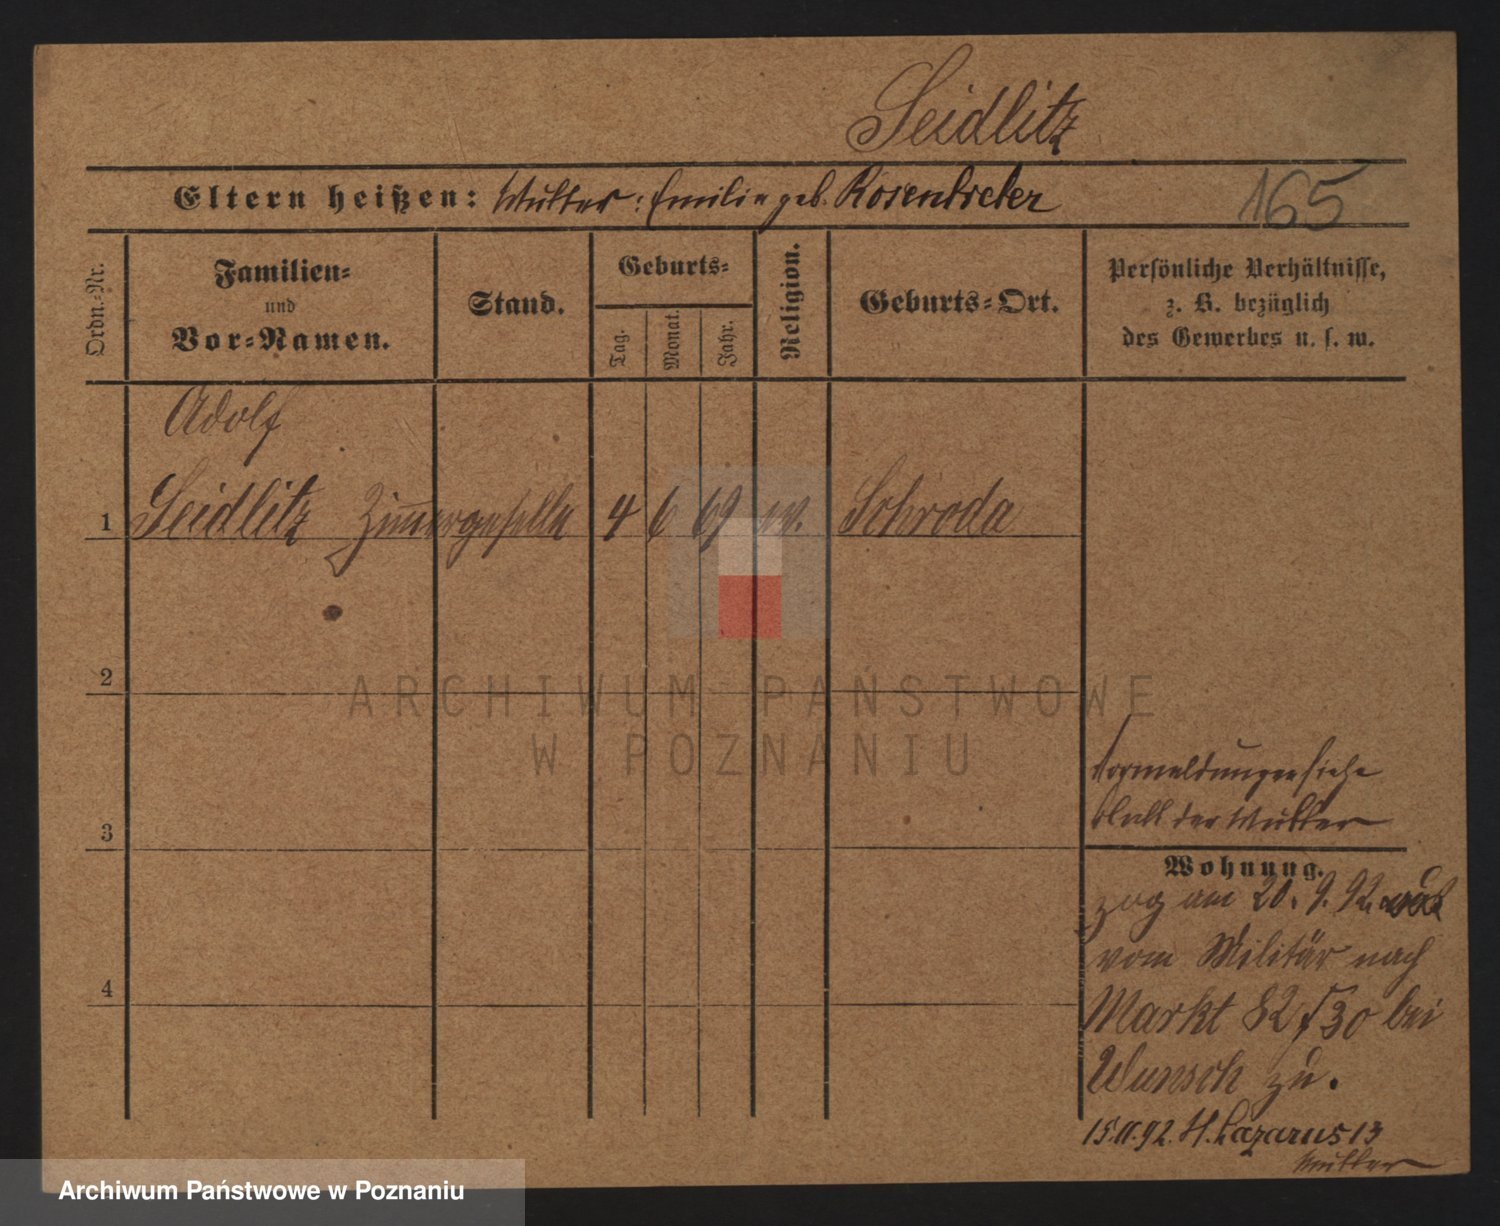 Seidlitz
Eltern heißen: Mutter: Emilie geb. Rosentreter
165
Ordn.-Nr.
Familien-
und
Vor-Namen.
Stand.
Geburts-
Tag.
Monat.
Jahr.
Religion.
Geburts-Ort.
Persönliche Verhältnisse,
z. B. bezüglich
des Gewerbes u. s. w.
Adolf
1 Seidlitz Zimmergeselle 4 6 69 ev. Schroda
2
3
4
ARCHIWUM PAŃSTWOWE
W POZNANIU
Vormeldungen siehe
Blatt der Mutter
Wohnung.
zog am 20. 9. 92
vom Militär nach
Markt 82 bei
Wunsch zu.
15.11.92. St. Lazarus 13
Mutter
Archiwum Państwowe w Poznaniu